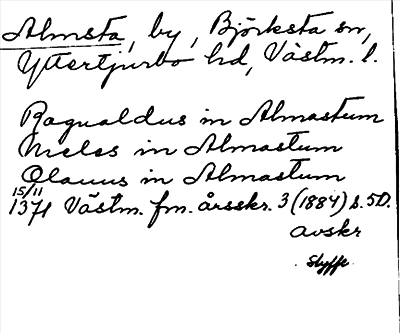 Almsta, by, Björksta sn,
Yttertjurbo hd, Västm. l.
Ragualdus in Almastum
Meles in Almastum
Olauus in Almastum
15/11
1371 Västm. fm. årsskr. 3 (1884) s. 50.
avskr
Styffe